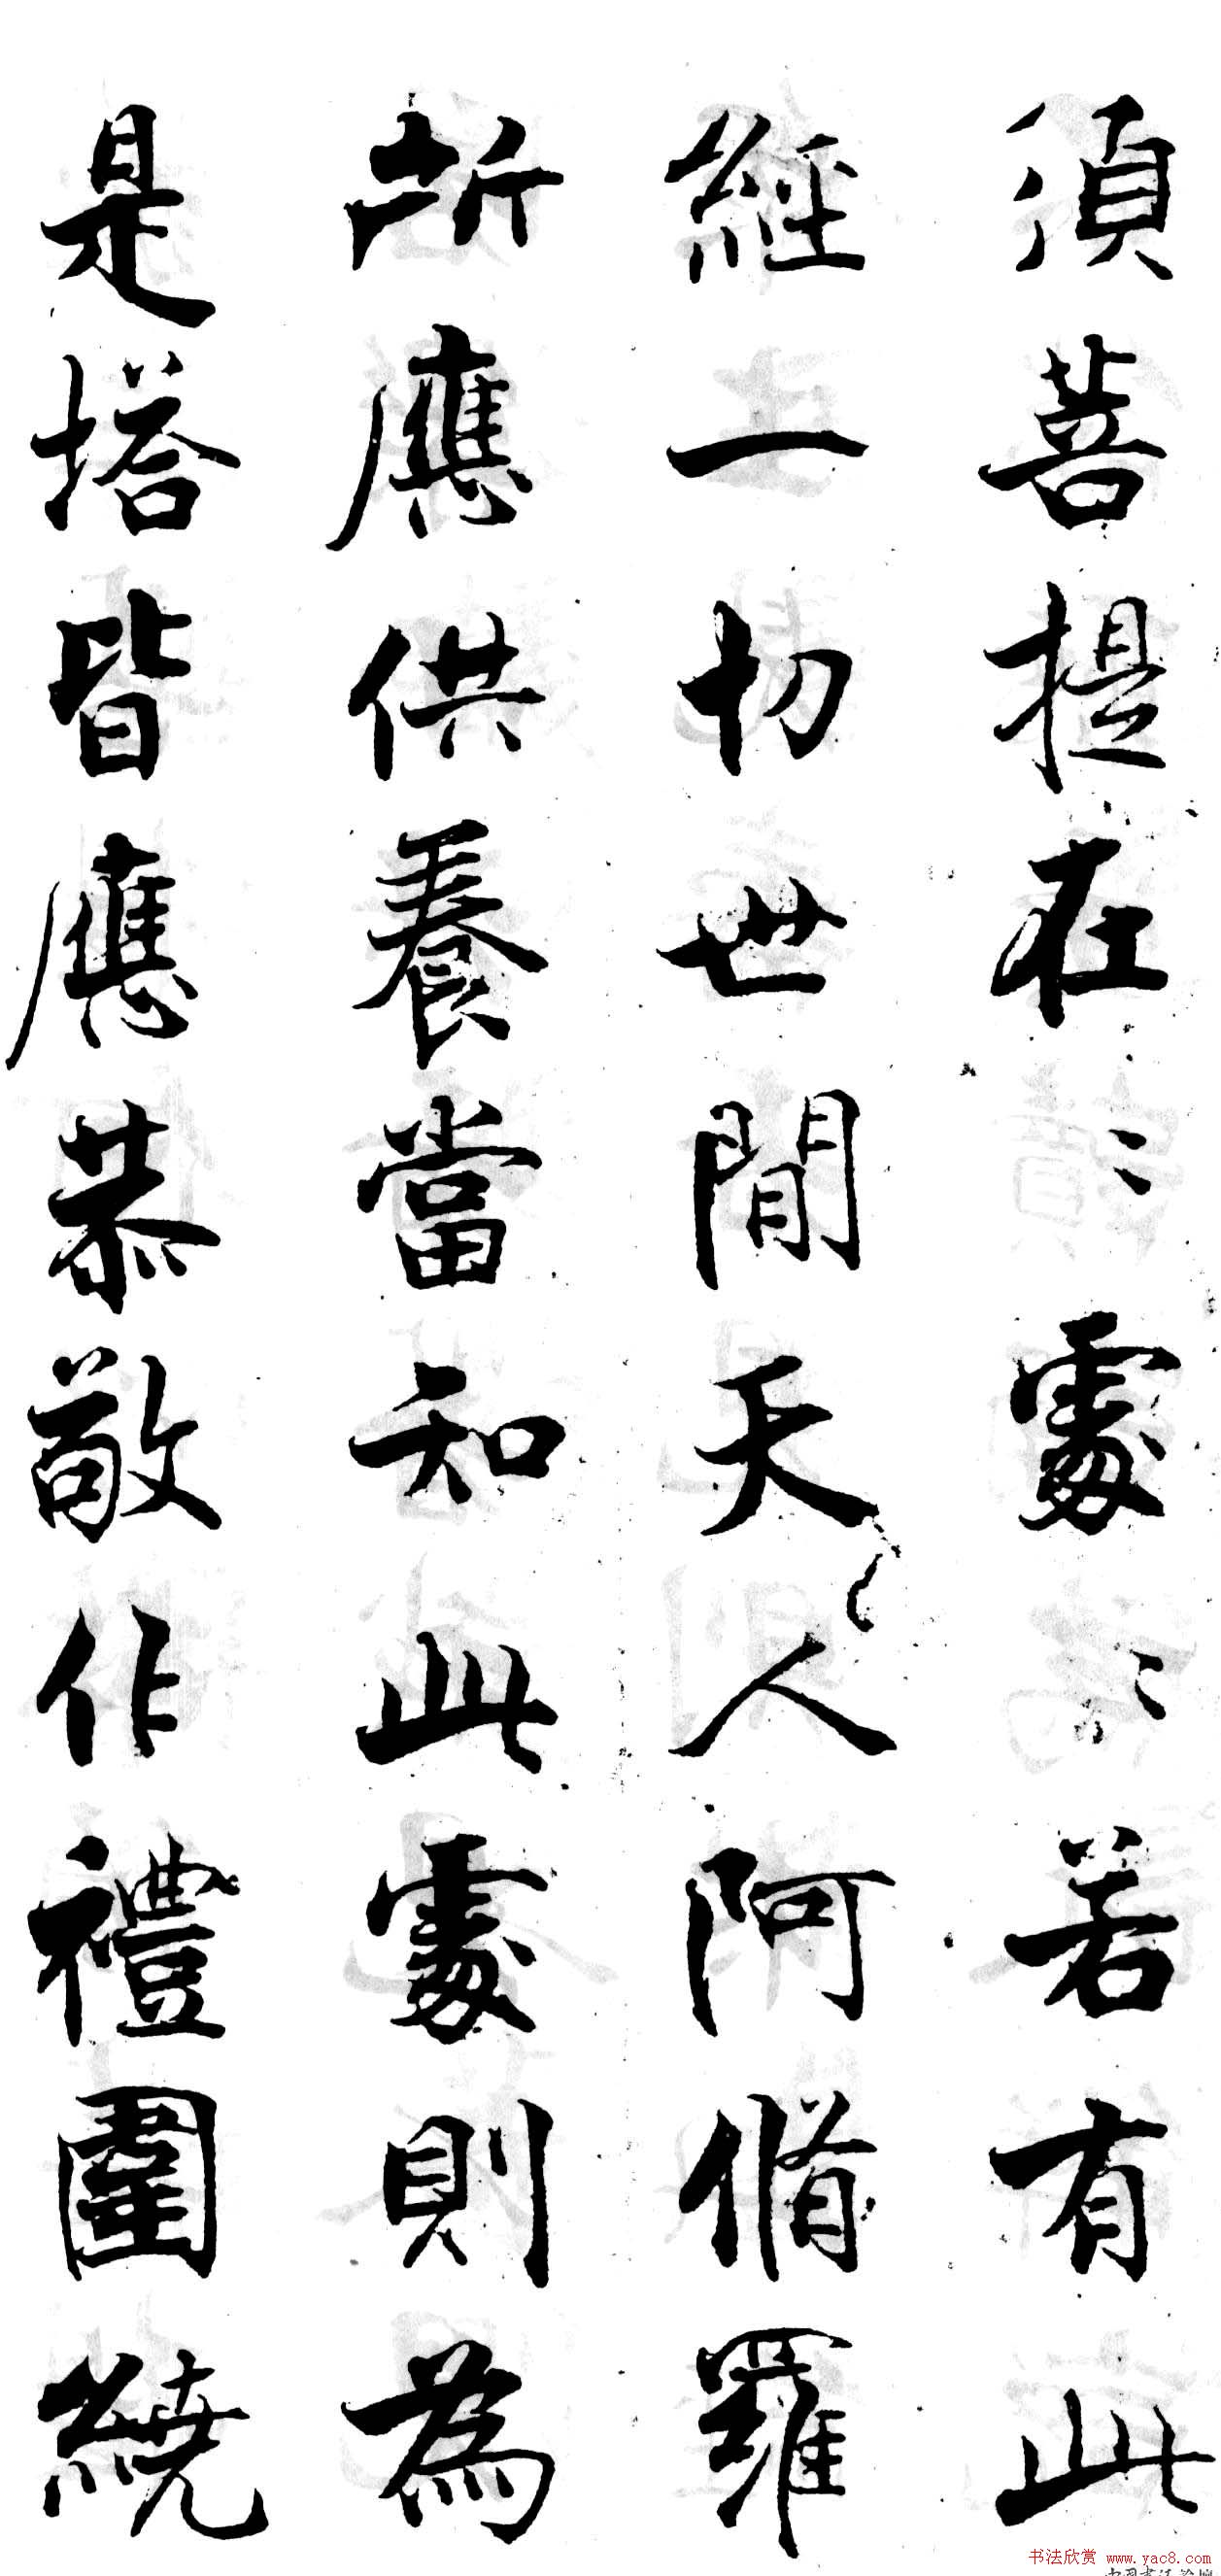 須菩提在〻處〻若有此
經一切世間天人阿脩羅
所應供養當知此處則為
是塔皆應恭敬作禮圍繞
书法欣赏 www.yac8.com